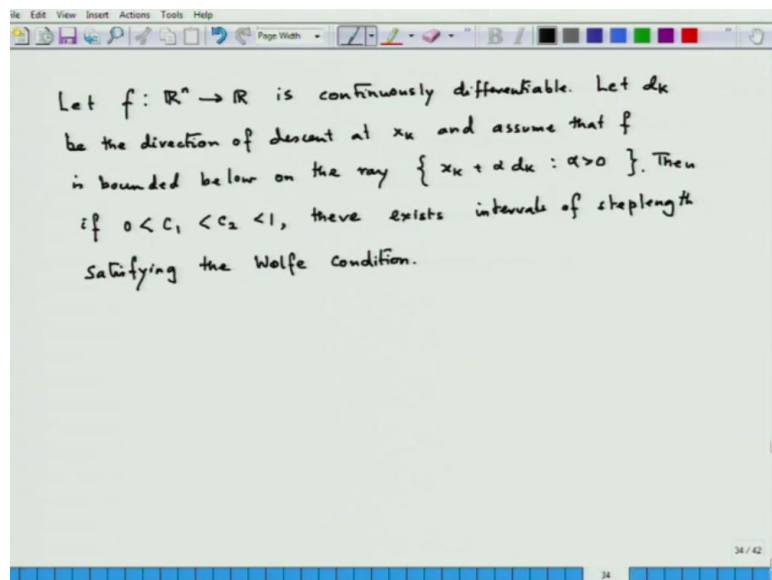 ile Edit View Insert Actions Tools Help
Page Width
B I
Let f : ℝⁿ → ℝ is continuously differentiable. Let dₖ
be the direction of descent at xₖ and assume that f
is bounded below on the ray { xₖ + α dₖ : α>0 }. Then
if 0 < C₁ < C₂ <1, there exists intervals of steplength
satisfying the Wolfe Condition.
34 / 42
34